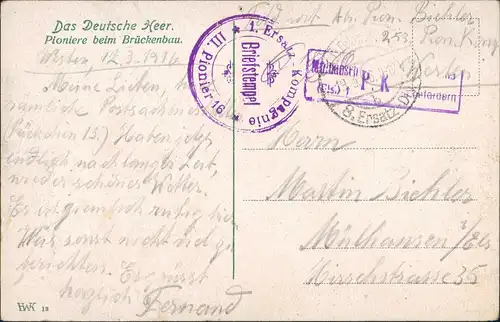 Das Deutsche Heer.
Pioniere beim Brückenbau.
Westen, 12.3.1916
Meine Lieben,
Postsachen
(Päckchen 13.) Haben jetzt
endlich nach langer Zeit,
wieder schönes Wetter.
Es ist ziemlich ruhig hier
Weis sonst nicht viel zu
berichten. Es grüsst
herzlich Fernand
HKK 13
1. Ersatz Kompagnie
III. Pionier 16
Briefstempel
Bichler
253
Pion. Komp.
Westen
Mülhausen
(Els.)
P. K.
befördern
8. Ersatz Div.
Herrn
Martin Bichler
Mülhausen i/Els
Hirschstrasse 35